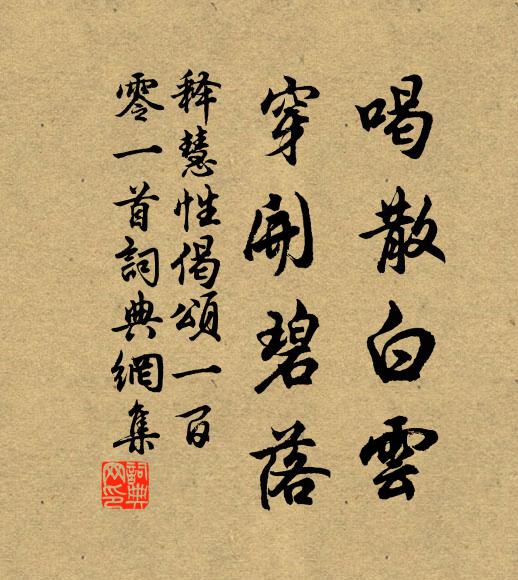 喝散白雲
穿開碧落
释慧性偈頌一百
零一首詞典網集
詞典网印